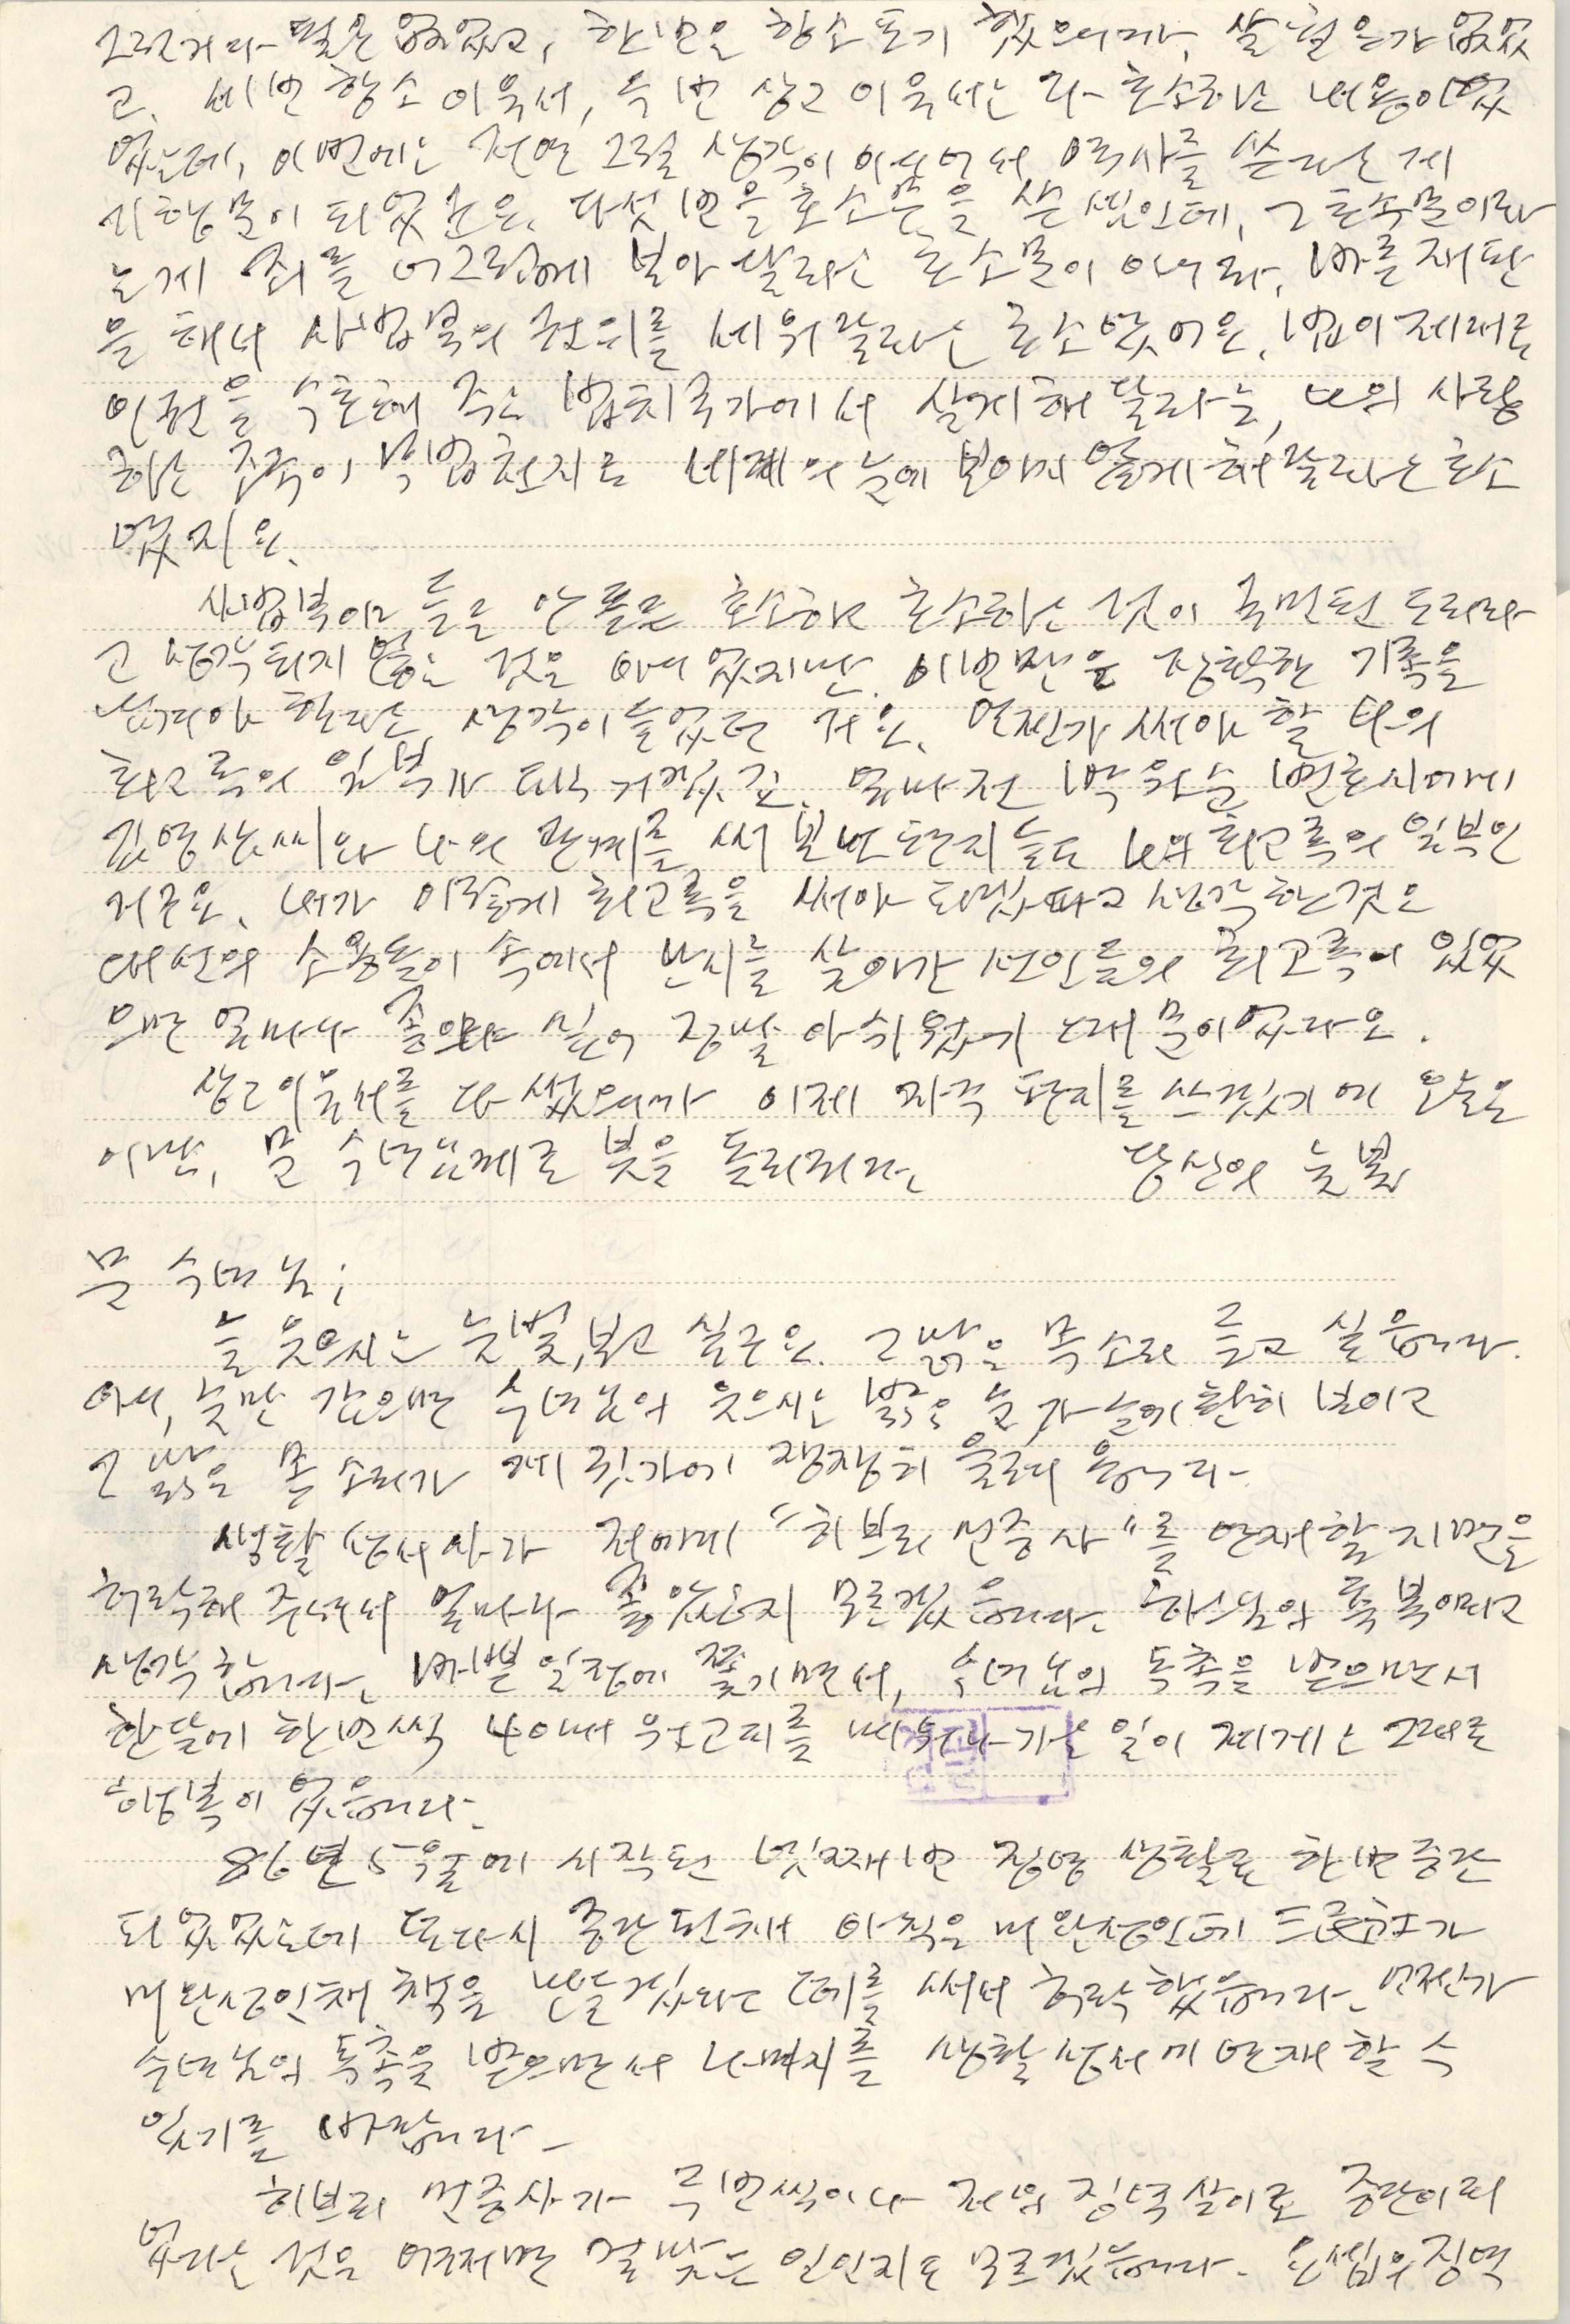 그랬거나 별일 없었고, 한번은 항소포기 했으니까, 쓸 필요가 없었
고. 세번 항소이유서, 두번 상고이유서는 다 호소하는 내용이었
었는데, 이번에는 전연 그럴 생각이 아니어서 역사를 쓴다는 게
되었군요. 다섯번을 호소문을 쓴 셈인데, 그 호소문이라
는게 죄를 너그럽게 보아 달라는 호소문이 아니라, 바른 재판
을 해서 사법부의 권위를 세워달라는 호소였어요. 법이 제대로
인권을 수호해 주는 법치국가에서 살게 해 달라는, 나의 사랑
하는 조국이 무법천지로 세계의 눈에 보이지 않게 해 달라는 호소
였지요.
사법부야 듣든 안 듣든 호소하고 호소하는 것이 국민된 도리라
고 생각되지 않는 것은 아니었지만, 이번만은 정확한 기록을
남겨야 한다는 생각이 들었던 거요. 언젠가 써야 할 나의
회고록의 일부가 되는 거겠고. 얼마전 박원순 변호사에게
김영삼씨와 나의 관계를 써 보낸 편지들도 나의 회고록의 일부인
거구요. 내가 이렇게 회고록을 써야 되겠다고 생각한 것은
역사의 소용돌이 속에서 한 시대를 살아간 선인들의 회고록이 있었
으면 얼마나 좋으랴 싶어 정말 아쉬웠기 때문이었다오.
상고이유서를 다 썼으니까 이제 자주 편지를 쓰겠기에 오늘은
이만, 문 수녀님께로 붓을 돌리리다. 당신의 늦봄
문 수녀님;
늘 웃으시는 눈빛, 보고 싶군요. 그 맑은 목소리 듣고 싶습니다.
아니, 눈만 감으면 수녀님의 웃으시는 밝은 눈가 눈에 환히 보이고
그 맑은 목소리가 제 귓가에 쟁쟁히 울려 옵니다.
생활성서사가 저에게 "히브리 민중사"를 연재할 지면을
허락해 주셔서 얼마나 좋았는지 모르겠습니다. 하느님의 축복이라고
생각합니다. 바쁜 일정에 쫓기면서, 수녀님의 독촉을 받으면서
한달에 한번씩 40매 원고지를 메워나가는 일이 제게는 그대로
행복이었습니다.
86년 5월에 시작된 네번째번 징역 생활로 한번 중단
되었었는데 또다시 중단된 채 아직은 미완성인데 드디어가
미완성인채 책을 내겠다는 데를 써서 허락했습니다. 언젠가
수녀님의 독촉을 받으면서 나머지를 생활성서에 연재할 수
있기를 바랍니다.
히브리 민중사가 두번씩이나 저의 징역살이로 중단이 되
었다는 것은 어쩌면 걸맞는 일인지도 모르겠습니다. 징역